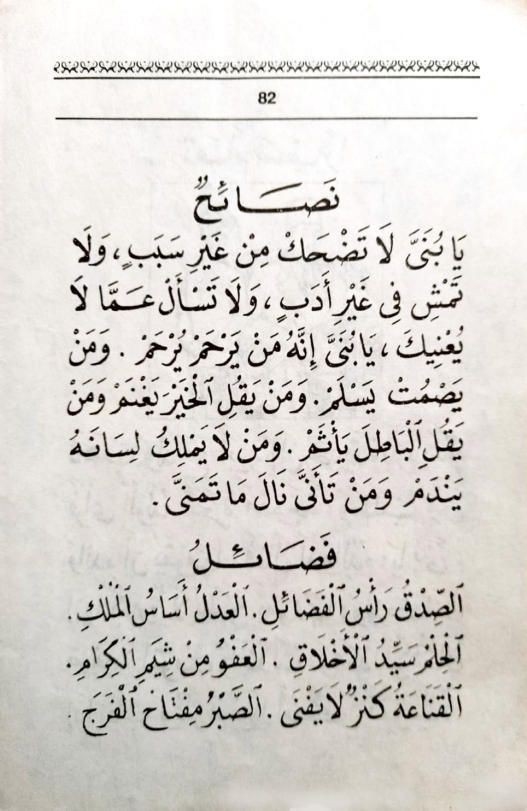 82
نَصَائِحُ
يَا بُنَيَّ لَا تَضْحَكْ مِنْ غَيْرِ سَبَبٍ ، وَلَا
تَمْشِ فِي غَيْرِ أَدَبٍ ، وَلَا تَسْأَلْ عَمَّا لَا
يُعْنِيكَ ، يَابُنَيَّ إِنَّهُ مَنْ يَرْحَمْ يُرْحَمْ . وَمَنْ
يَصْمُتْ يَسْلَمْ . وَمَنْ يَقُلِ الْخَيْرَ يَغْنَمْ وَمَنْ
يَقُلِ الْبَاطِلَ يَأْثَمْ . وَمَنْ لَا يَمْلِكُ لِسَانَهُ
يَنْدَمْ وَمَنْ تَأَنَّى نَالَ مَا تَمَنَّى .
فَضَائِلُ
الصِّدْقُ رَأْسُ الْفَضَائِلِ . الْعَدْلُ أَسَاسُ الْمُلْكِ .
الْحِلْمُ سَيِّدُ الْأَخْلَاقِ . الْعَفْوُ مِنْ شِيَمِ الْكِرَامِ .
الْقَنَاعَةُ كَنْزٌ لَا يَفْنَى . الصَّبْرُ مِفْتَاحُ الْفَرَجِ .